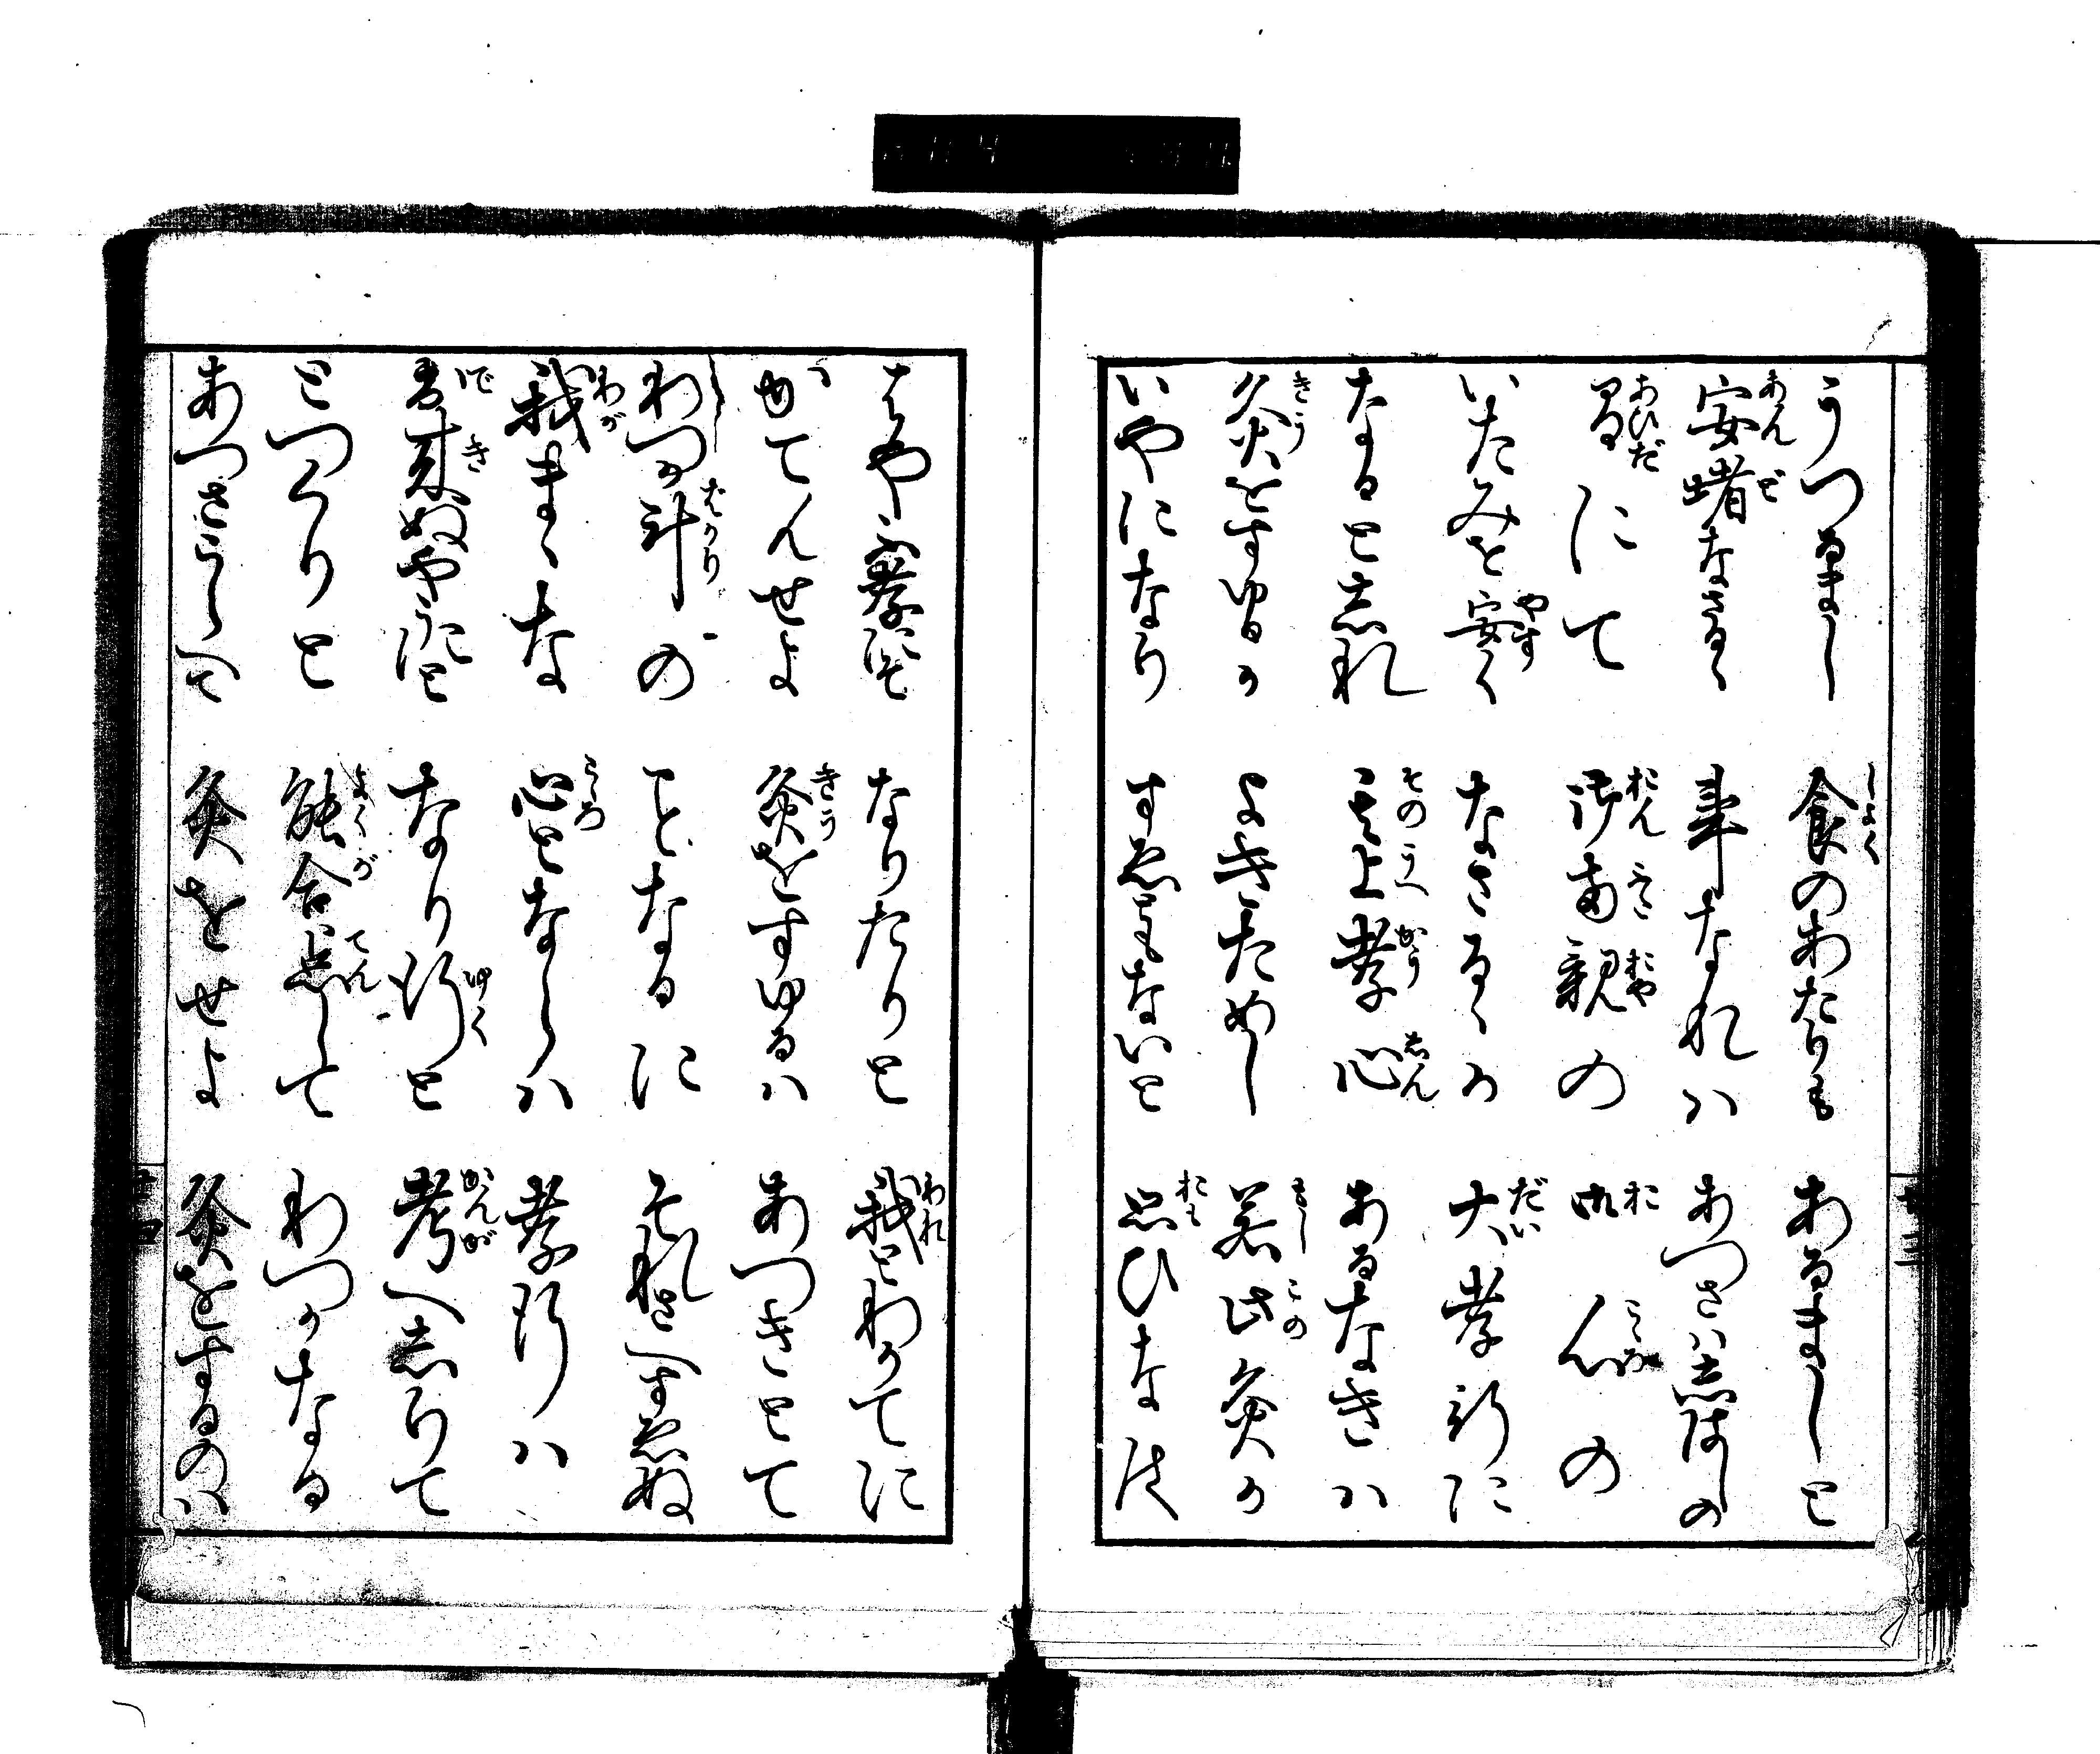 うつるまし 食のあたりも あるましと
安堵なさるゝ 事なれハ あつさハ志はしの
間にて 御両親の 御心の
いたみを安く なさるゝか 大孝行に
なると志れ 其上孝心 あるなきハ
灸をすゆるか よきためし 若此灸か
いやになり すゑともないと 思ひなは
はや不孝にそ なりたりと 我とわかてに
がてんせよ 灸をすゆるハ あつきとて
わつか斗の ことなるに それさへすゑぬ
我まゝな 心となしハ 孝行ハ
出来ぬやうにと なり行と 考へ志りて
とつくりと 能合点して わつかなる
あつさこらへて 灸をせよ 灸をするのハ